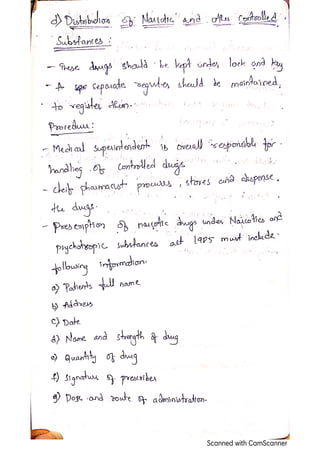 d) Distribution of Narcotic and other Controlled
Substances :
- These drugs should be kept under lock and key
- A spe separate register should be maintained,
to register them.
Procedure :
- Medical superintendent is overall responsible for
handling of controlled drugs.
- cheif pharmacist procures, stores and dispense,
the drugs.
- Prescription of narcotic drugs under Narcotics and
psychotropic substances act 1985 must include
following information.
a) Patients full name
b) Address
c) Date
d) Name and strength of drug
e) Quantity of drug
f) signature of prescriber
g) Dose and route of administration.
Scanned with CamScanner